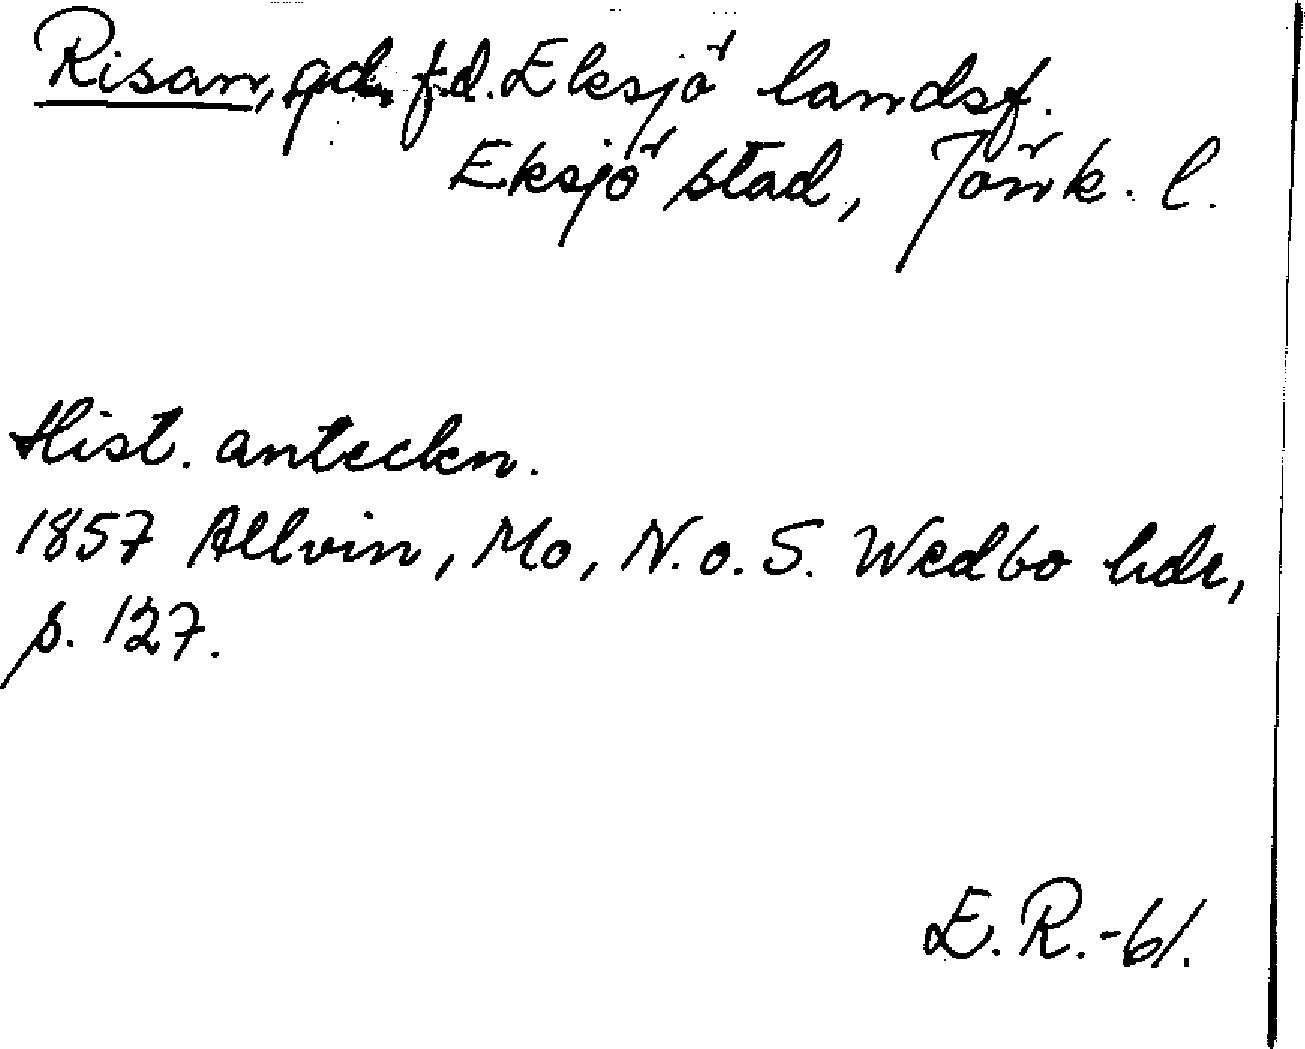 Risan, gd, f.d. Eksjö landsf.
Eksjö stad, Jönk. l.
Hist. anteckn.
1857 Allvin, Mo, N. o. S. Wedbo hdr,
s. 127.
E. R. -61.